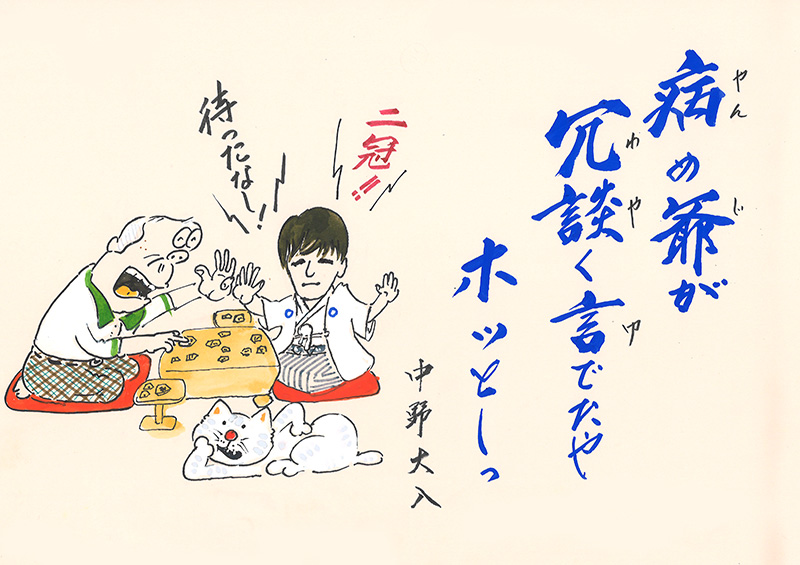 やん じ
病め爺が
わや ゆ
冗談く言でたや
ホッとしっ
中野大入
二冠!!
待ったなし!